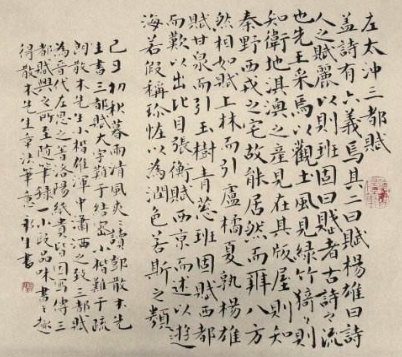 左太沖三都賦
盖詩有六義焉其二曰賦楊雄曰詩
人之賦麗以則班固曰賦者古詩之流
也先王采焉以觀土風見綠竹猗則
知衛地淇澳之產見在其版屋則知
秦野西戎之宅故能居然而辨八方
然相如賦上林而引盧橘夏熟楊雄
賦甘泉而引玉樹青蔥班固賦西都
而歎以出比目張衡賦西京而述以遊
海若假稱珍恠以為潤色若斯之類
己丑初秋暮雨清風爽讀鄧散木先
生書三都賦大字難于結密小楷難于疏
朗散木先生小楷雄渾中瀟洒之致三都賦
為晉代左思之著洛陽紙貴皆因寫傳三
都賦興之所至隨筆錄一小段品味書之趣
得散木先生章法筆意 永生書